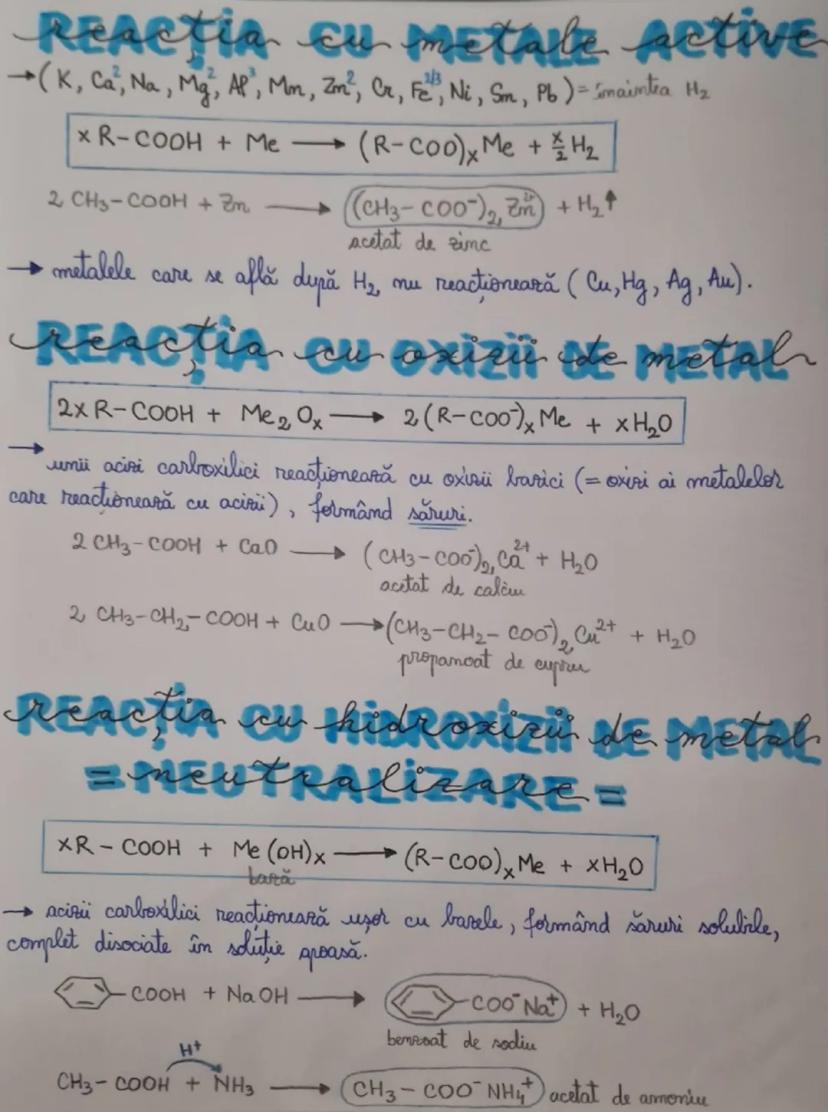 REACȚIA CU METALE ACTIVE
→ (K, Ca², Na, Mg², Al³, Mn, Zn², Cr, Fe²/³, Ni, Sn, Pb) = înaintea H₂
xR-COOH + Me → (R-COO)ₓMe + x/2 H₂
2 CH₃-COOH + Zn → (CH₃-COO⁻)₂Zn²⁺ + H₂↑
acetat de zinc
→ metalele care se află după H₂ nu reacționează (Cu, Hg, Ag, Au).
REACȚIA CU OXIZII DE METAL
2xR-COOH + Me₂Oₓ → 2(R-COO⁻)ₓMe + xH₂O
→ unii acizi carboxilici reacționează cu oxizii bazici (= oxizi ai metalelor
care reacționează cu acizii), formând săruri.
2 CH₃-COOH + CaO → (CH₃-COO⁻)₂Ca²⁺ + H₂O
acetat de calciu
2 CH₃-CH₂-COOH + CuO → (CH₃-CH₂-COO⁻)₂Cu²⁺ + H₂O
propanoat de cupru
REACȚIA CU HIDROXIZII DE METAL
= NEUTRALIZARE =
xR-COOH + Me(OH)ₓ → (R-COO)ₓMe + xH₂O
bază
→ acizii carboxilici reacționează ușor cu bazele, formând săruri solubile,
complet disociate în soluție apoasă.
-COOH + NaOH → -COO⁻Na⁺ + H₂O
benzoat de sodiu
H⁺
CH₃-COOH + NH₃ → CH₃-COO⁻NH₄⁺ acetat de amoniu